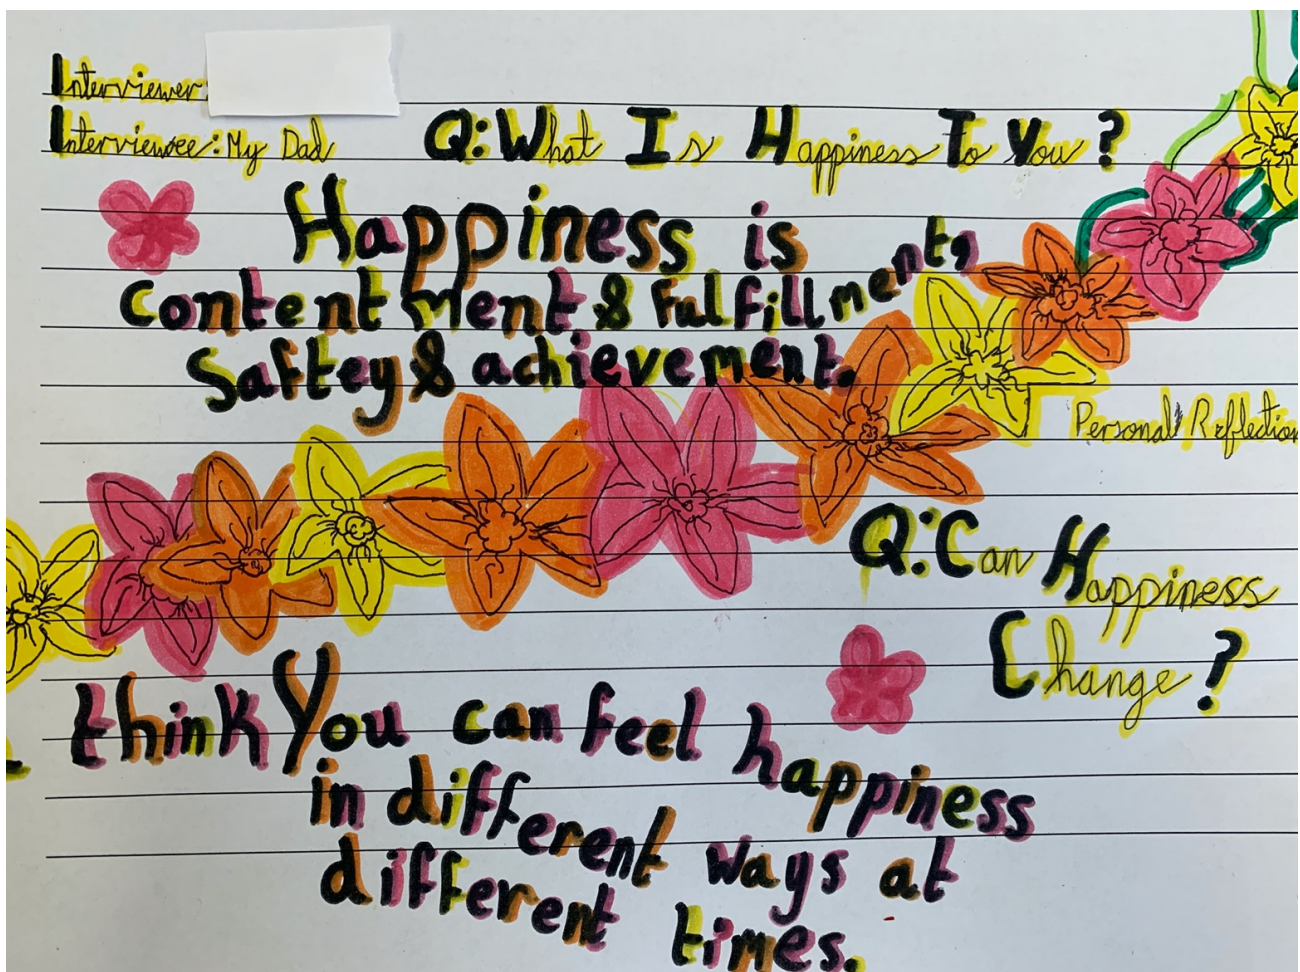 Interviewer:
Interviewee: My Dad
Q: What Is Happiness To You?
Happiness is
Contentment & Fulfillment,
Saftey & achievement.
Personal Reflection
Q: Can Happiness
Change?
think You can feel happiness
in different ways at
different times.